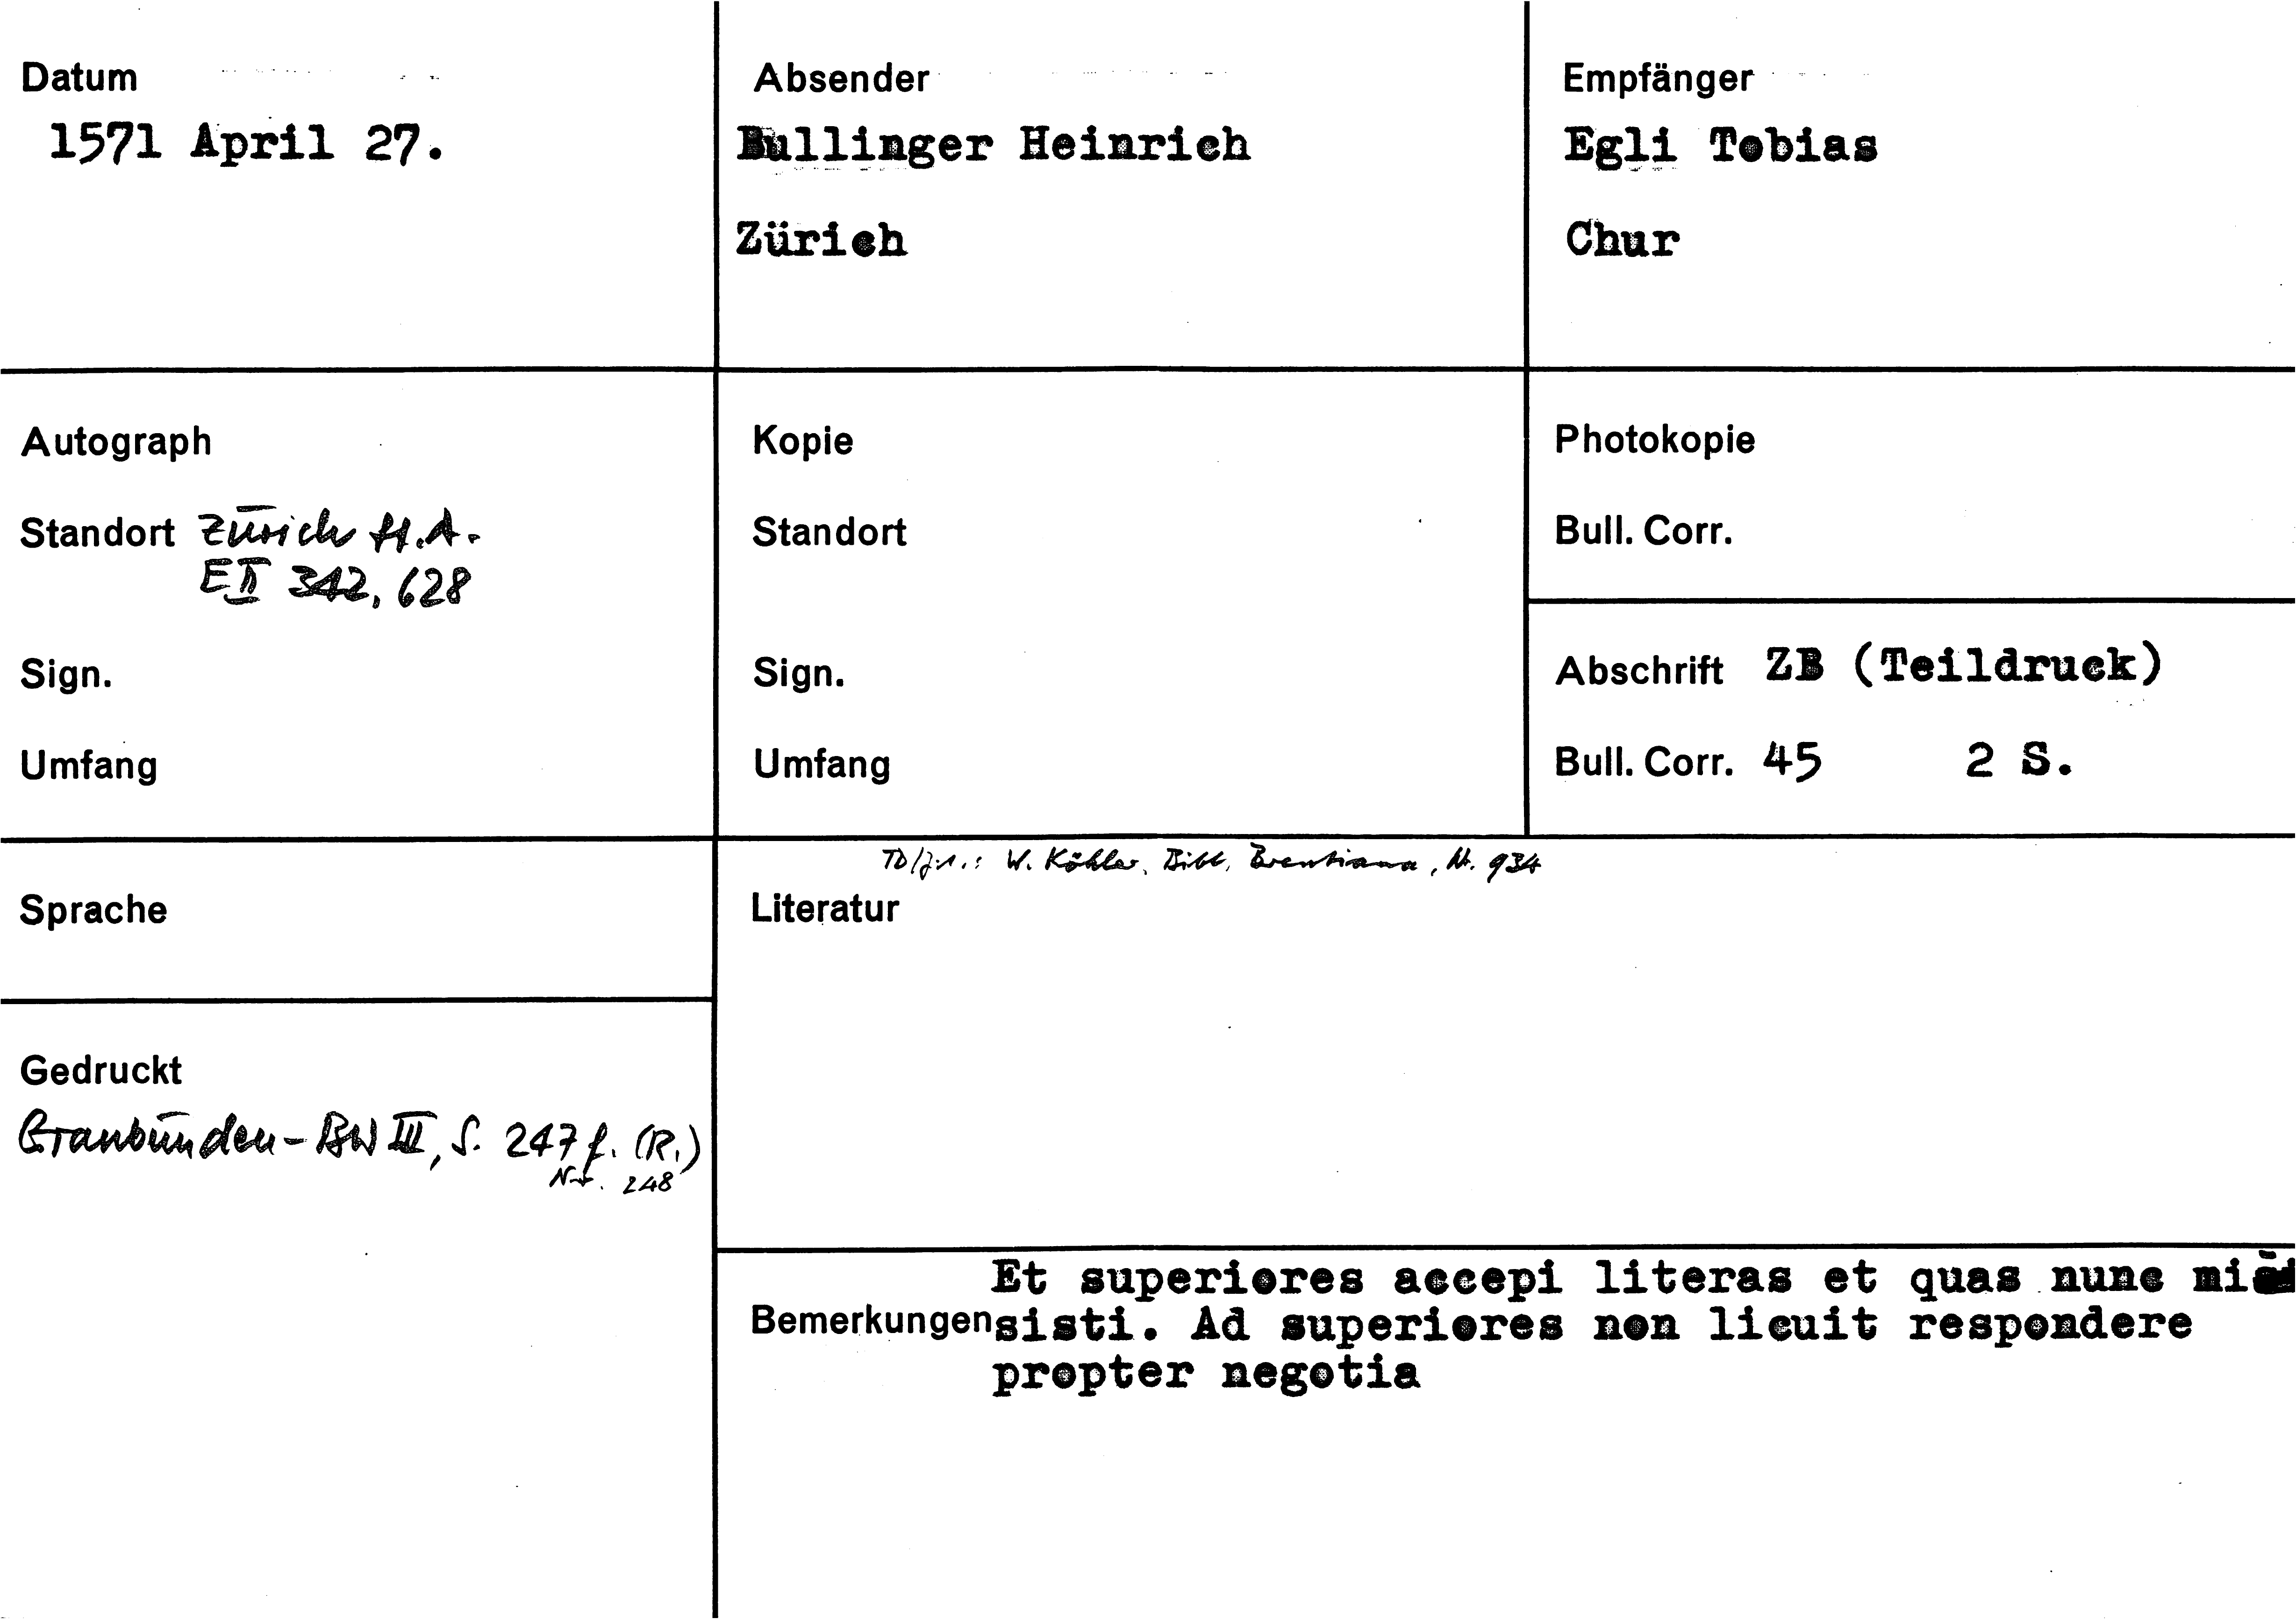 Datum
1571 April 27.
Absender
Bullinger Heinrich
Zürich
Empfänger
Egli Tobias
Chur
Autograph
Standort Zürich H.A.
E II 342, 628
Sign.
Umfang
Kopie
Standort
Sign.
Umfang
Photokopie
Bull. Corr.
Abschrift ZB (Teildruck)
Bull. Corr. 45 2 S.
Sprache
Gedruckt
Graubünden-BW III, S. 247 f. (R.)
Nr. 248
W. Köhler, Bibl. Brentiana, Nr. 934
Literatur
Et superiores accepi literas et quas nunc mi
Bemerkungen sisti. Ad superiores non licuit respondere
propter negotia